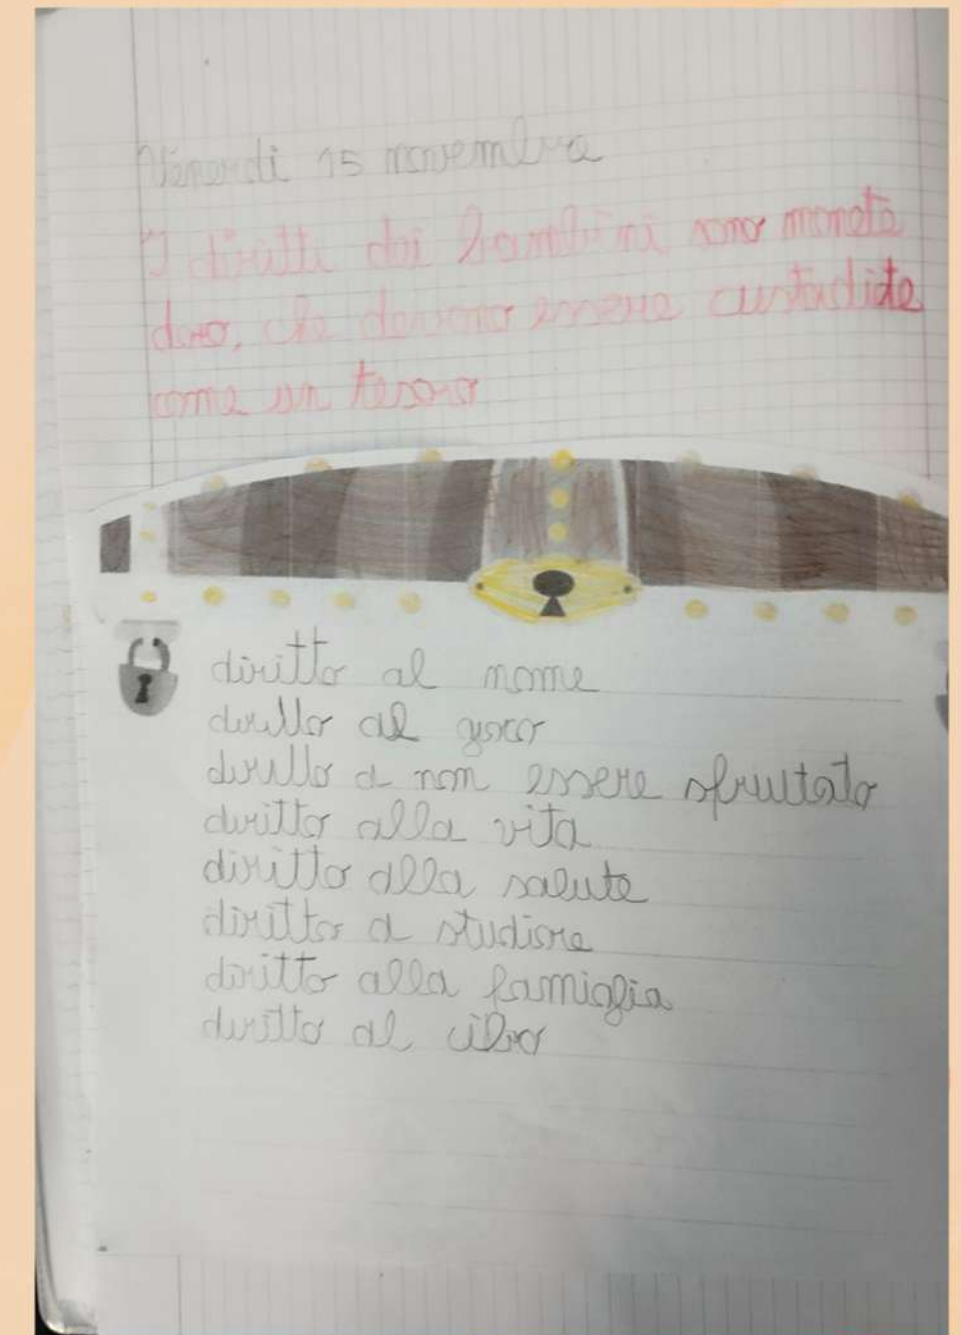 Venerdi 15 novembre
I diritti dei bambini sono monete
doro, che devono essere custodite
come un tesoro
diritto al nome
diritto al gioco
diritto a non essere sfruttato
diritto alla vita
diritto alla salute
diritto a studiare
diritto alla famiglia
diritto al cibo